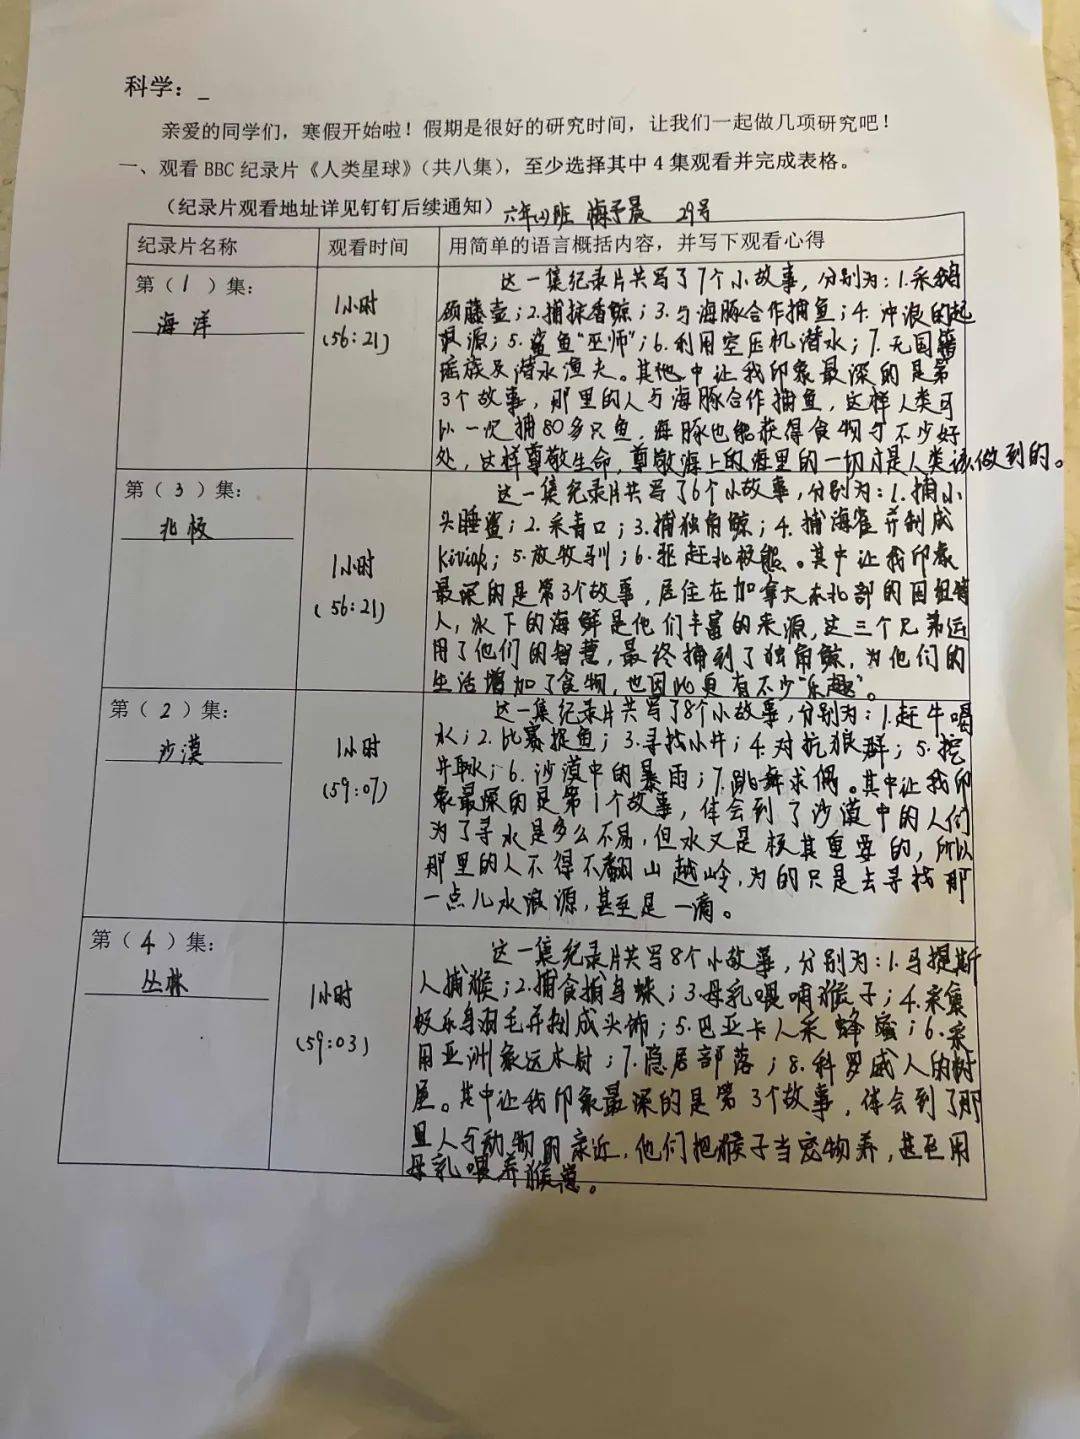 科学：_
亲爱的同学们，寒假开始啦！假期是很好的研究时间，让我们一起做几项研究吧！
一、观看 BBC 纪录片《人类星球》（共八集），至少选择其中 4 集观看并完成表格。
（纪录片观看地址详见钉钉后续通知）六年(2)班 梅予晨 29号
纪录片名称 观看时间 用简单的语言概括内容，并写下观看心得
第（1）集：
海洋
1小时
(56:21)
这一集纪录片共写了7个小故事，分别为：1.采鹅
颈藤壶；2.捕抹香鲸；3.与海豚合作捕鱼；4.冲浪的起
源；5.鲨鱼“巫师”；6.利用空压机潜水；7.无国籍
瑶族及潜水渔夫。其他中让我印象最深的是第
3个故事，那里的人与海豚合作捕鱼，这样人类可
以一次捕80多只鱼，海豚也能获得食物 不少好
处，这样尊敬生命，尊敬海上的海里的一切才是人类该做到的。
第（3）集：
北极
1小时
(56:21)
这一集纪录片共写了6个小故事，分别为：1.捕小
头睡鲨；2.采青口；3.捕独角鲸；4.捕海雀并制成
Kiviak；5.放牧驯；6.驱赶北极熊。其中让我印象
最深的是第3个故事，居住在加拿大东北部的因纽特
人，冰下的海鲜是他们丰富的来源，这三个兄弟运
用了他们的智慧，最终捕到了独角鲸，为他们的
生活增加了食物，也因此更有不少“乐趣”。
第（2）集：
沙漠
1小时
(59:07)
这一集纪录片共写了8个小故事，分别为：1.赶牛喝
水；2.比赛捉鱼；3.寻找小井；4.对抗狼群；5.挖
井取水；6.沙漠中的暴雨；7.跳舞求偶。其中让我印
象最深的是第1个故事，体会到了沙漠中的人们
为了寻水是多么不易，但水又是极其重要的，所以
那里的人不得不翻山越岭，为的只是去寻找那
一点儿水源，甚至是一滴。
第（4）集：
丛林
1小时
(59:03)
这一集纪录片共写8个小故事，分别为：1.马提斯
人捕猴；2.捕食捕鸟蛛；3.母乳喂哺猴子；4.采集
极乐鸟羽毛并制成头饰；5.巴亚卡人采蜂蜜；6.采
用亚洲象运木材；7.隐居部落；8.科罗威人的树
屋。其中让我印象最深的是第3个故事，体会到了那
里人与动物的亲近，他们把猴子当宠物养，甚至用
母乳喂养猴崽。